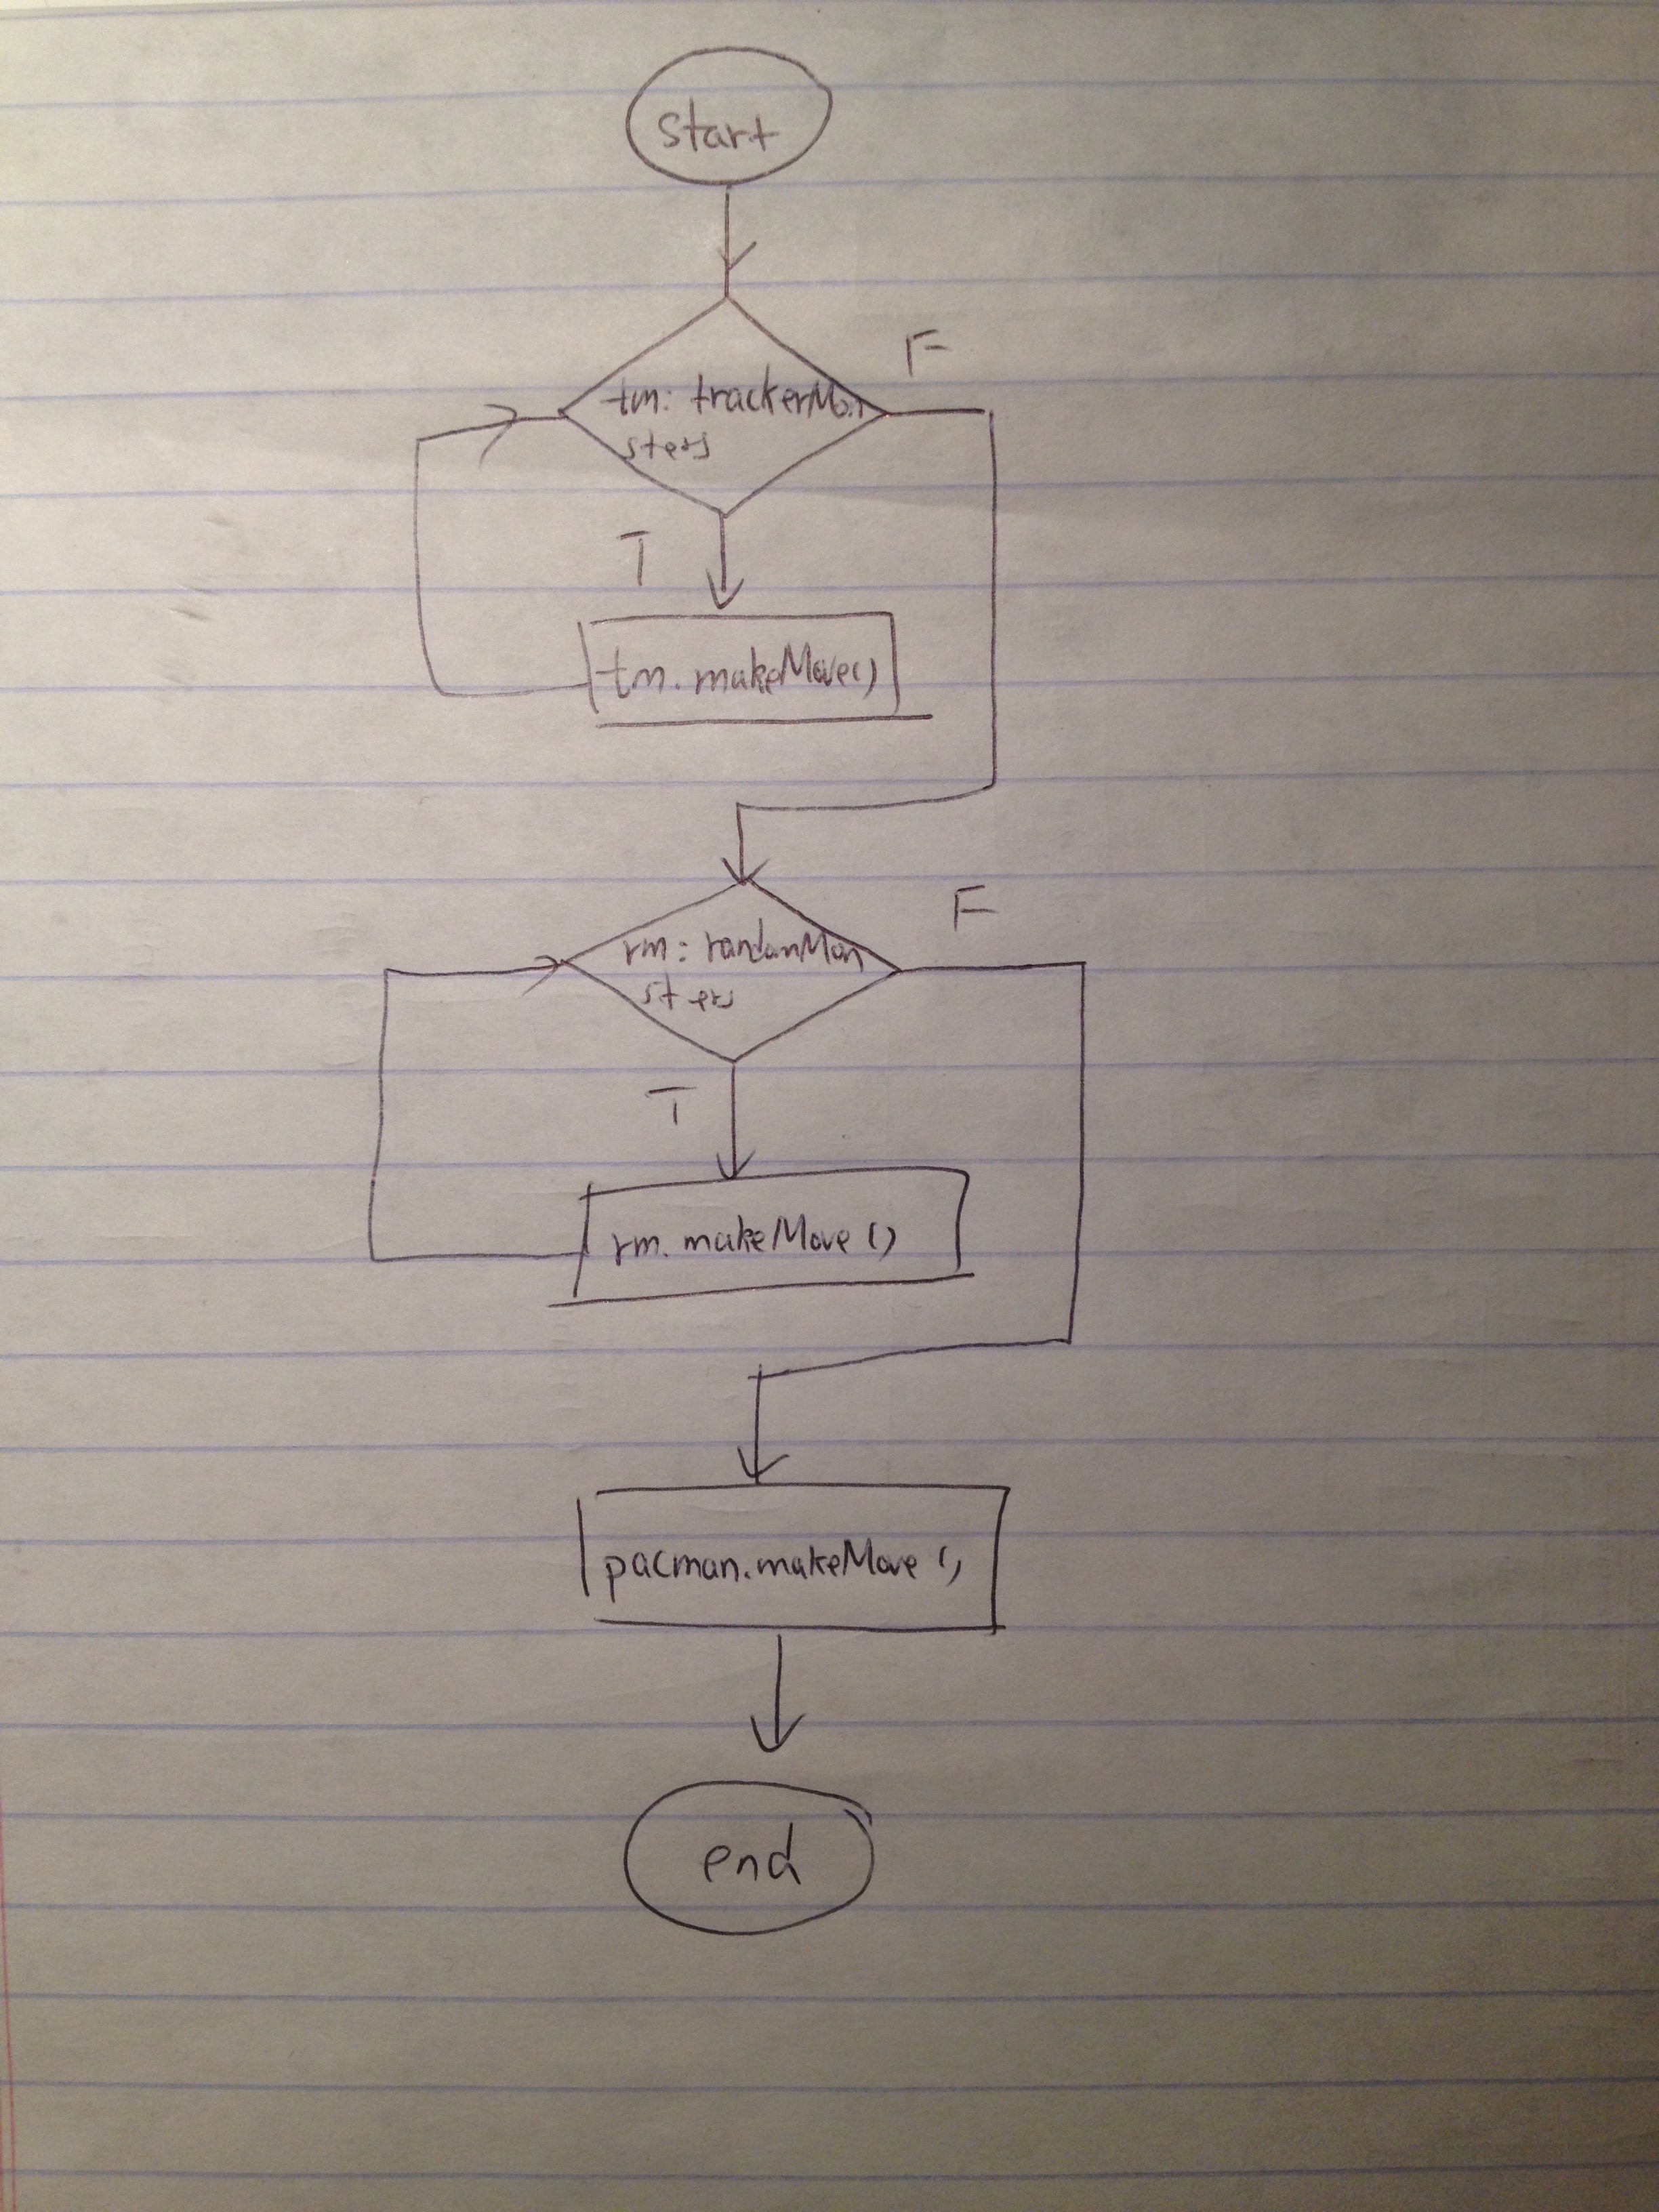 start
F
tm: trackerMon
sters
T
tm.makeMove()
F
rm: randomMon
sters
T
rm.makeMove()
pacman.makeMove()
end